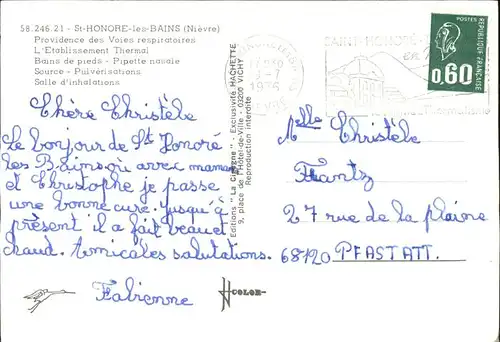 58.246.21 - St-HONORE-les-BAINS (Nièvre)
Providence des Voies respiratoires
L'Etablissement Thermal
Bains de pieds - Pipette nasale
Source - Pulvérisations
Salle d'inhalations
Chère Christèle
Le bonjour de St Honoré
les Bains où avec maman
et Christophe je passe
une bonne cure. Jusqu'à
présent il a fait beau et
chaud. Amicales salutations.
Fabienne
Editions "La Cigogne" - Exclusivité HACHETTE
9, place de l'Hôtel-de-Ville - 03200 VICHY
Reproduction interdite
COLOR
1976
SAINT-HONORÉ
POSTES
0,60
REPUBLIQUE FRANÇAISE
Melle Christèle
Frantz
27 rue de la plaine
68120 PFASTATT.